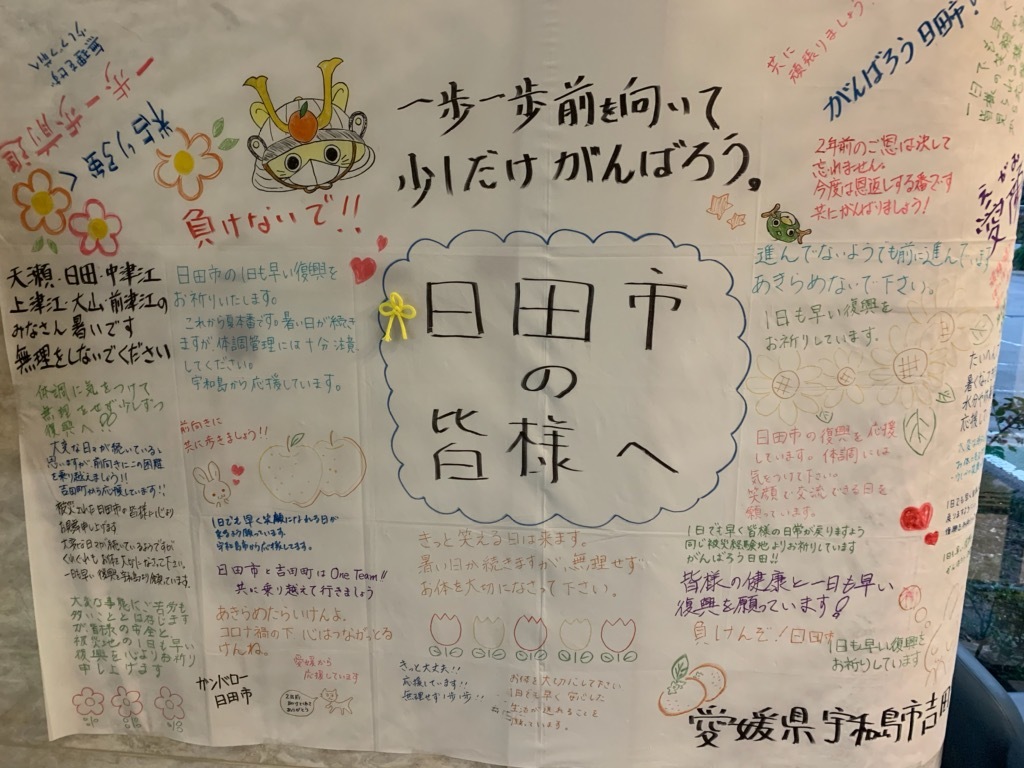 一歩一歩前進
粘り強く
一歩一歩前を向いて
少しだけがんばろう。
共に
頑張りましょう!
がんばろう日田市!
負けないで!!
2年前のご恩は決して
忘れません。
今度は恩返しする番です
共にがんばりましょう!
天瀬・日田・中津江
上津江・大山・前津江の
みなさん暑いです
無理をしないでください
日田市の1日も早い復興を
お祈りいたします。
これから夏本番です。暑い日が続き
ますが体調管理には十分注意
してください。
宇和島から応援しています。
日田市
の
皆様へ
進んでないようでも前に進んでいます
あきらめないで下さい。
1日も早い復興を
お祈りしています。
体調に気をつけて
無理をせず少しずつ
復興へ!!
大変な日々が続いていると
思いますが、前向きにこの困難
を乗り越えましょう!!
吉田町から応援しています!!
前向きに
共に歩きましょう!!
1日でも早く笑顔になれる日が
来るよう願っています。
宇和島市から応援してます。
日田市と吉田町はOne Team!!
共に乗り越えて行きましょう
あきらめたらいけんよ。
コロナ禍の下 心はつながっとる
けんね。
愛媛から
応援しています
ガンバロー
日田市
2年前
助けいただき
ありがとう
きっと笑える日は来ます。
暑い日が続きますが、無理せず
お体を大切になさって下さい。
きっと大丈夫!!
応援しています!!
無理せず一歩一歩!!
お体を大切にして下さい
1日も早く
生活が送れることを
願っています。
日田市の復興を応援
しています。体調には
気をつけて下さい。
笑顔で交流できる日を
願っています。
1日でも早く皆様の日常が戻りますよう
同じ被災経験地よりお祈りしています
がんばろう日田!!
皆様の健康と一日も早い
復興を願っています!
負けんぞ!日田市
1日も早い復興を
お祈りしています
愛媛県宇和島市吉田